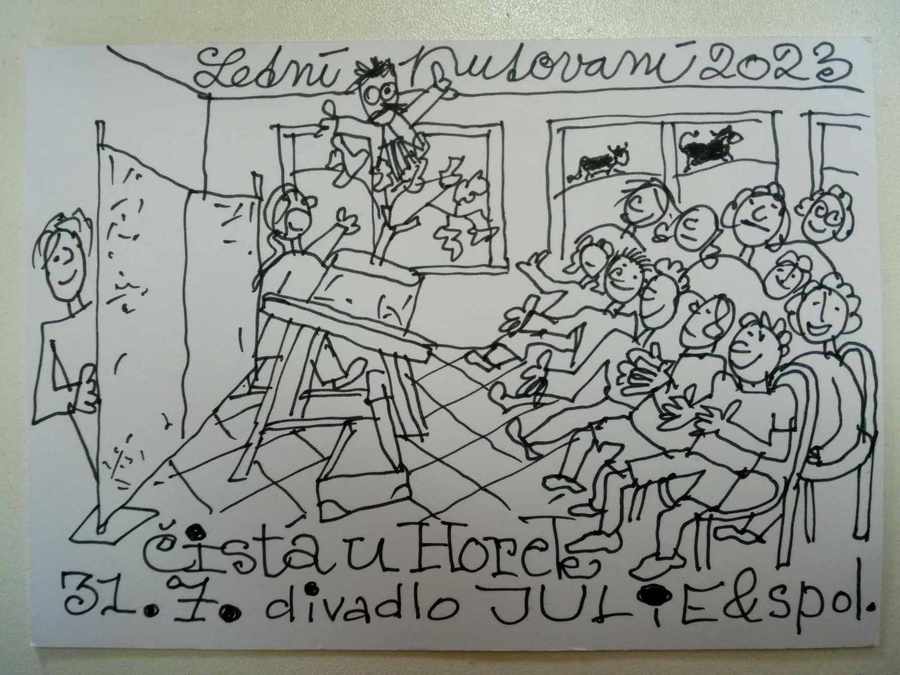 Letní Putovaní 2023
čistá u Horek
31. 7. divadlo JULiE&spol.